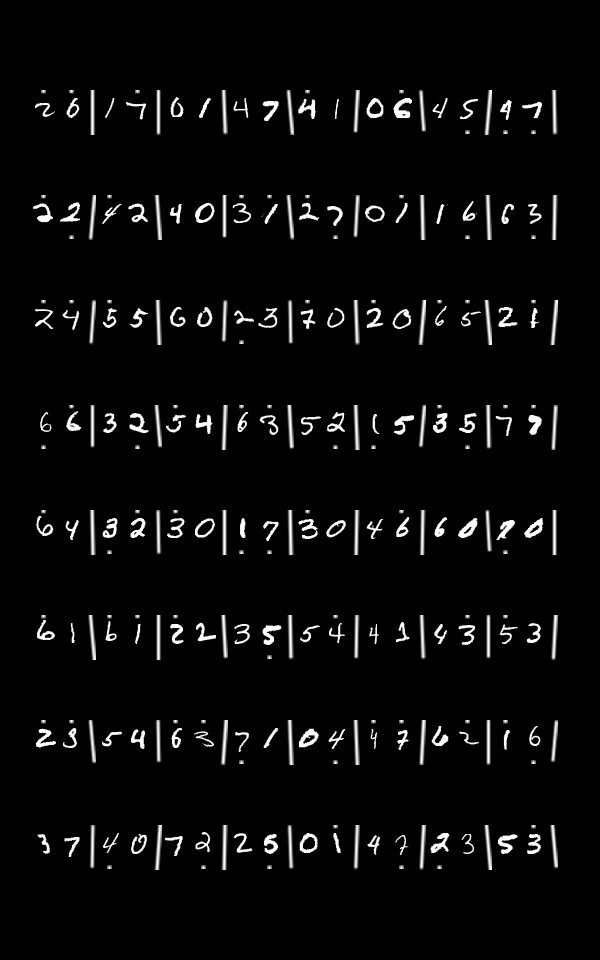 2 6 | 1 7 | 0 1 | 4 7 | 4 1 | 0 6 | 4 5 | 4 7 |
2 2 | 4 2 | 4 0 | 3 1 | 2 7 | 0 1 | 1 6 | 6 3 |
2 4 | 5 5 | 6 0 | 2 3 | 7 0 | 2 0 | 6 5 | 2 1 |
6 6 | 3 2 | 5 4 | 6 3 | 5 2 | 1 5 | 3 5 | 7 7 |
6 4 | 3 2 | 3 0 | 1 7 | 3 0 | 4 6 | 6 0 | 7 0 |
6 1 | 6 1 | 2 2 | 3 5 | 5 4 | 4 1 | 4 3 | 5 3 |
2 3 | 5 4 | 6 3 | 7 1 | 0 4 | 4 7 | 6 2 | 1 6 |
3 7 | 4 0 | 7 2 | 2 5 | 0 1 | 4 7 | 2 3 | 5 3 |